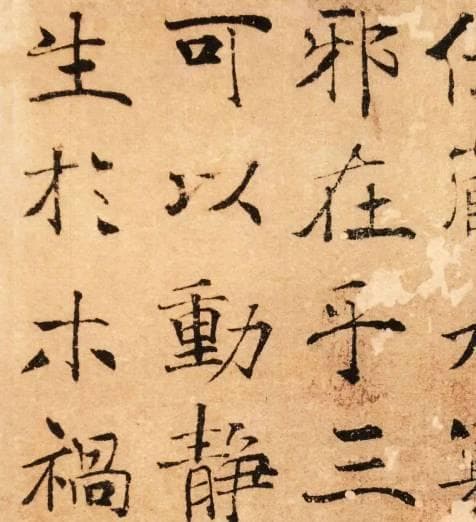 邪在乎三
可以動靜
生於木禍